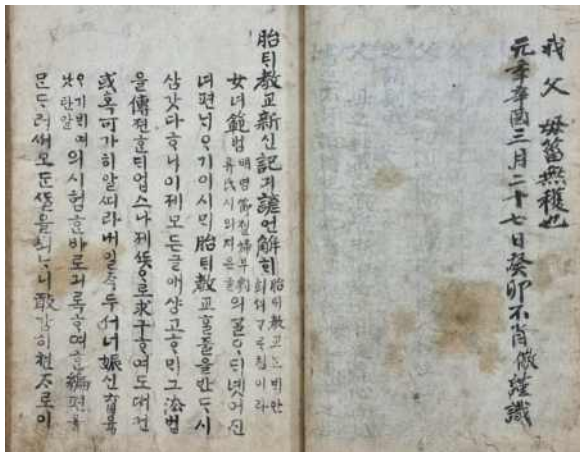 我父母菑無穫也
元年辛酉三月二十七日癸卯不肖儆謹識
胎ᄐᆡ敎교新신記긔諺언解ᄒᆡ
胎ᄐᆡ敎교ᄂᆞᆫᄇᆡ안
희셔ᄀᆞᄅᆞ침이라
女녀範범
의ᄀᆞᆯᄋᆞᄃᆡ녯어진
녀편ᄂᆡᄋᆞ기이시ᄆᆡ胎ᄐᆡ敎교ᄒᆞᆯ줄을반ᄃᆞ시
삼갓다ᄒᆞ니이제모든글애샹고ᄒᆞᄆᆡ그法법
을傳젼ᄒᆞᆫᄃᆡ업스나제ᄯᅳᆺ으로求구ᄒᆞ여도대뎐
或혹可가히알띠라내일즉두서너娠신育육
의시험ᄒᆞᆫ바로긔록ᄒᆞ여ᄒᆞᆫ編편을
ᄆᆞᆫᄃᆞ러ᄡᅥ모든ᄯᆞᆯ을뵈ᄂᆞ니敢감히쳔ᄌᆞ로이